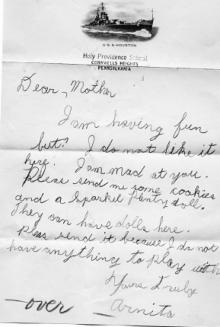 U.S.S. HOUSTON
Holy Providence School
CORNWELLS HEIGHTS
PENNSYLVANIA
Dear, Mother
I am having fun
but. I do not like it
here. I am mad at you.
Please send me some cookies
and a Sparkel Plenty doll.
They can have dolls here.
Pleas send it because I do not
have anything to play with
Yours truly
—over— Arnita